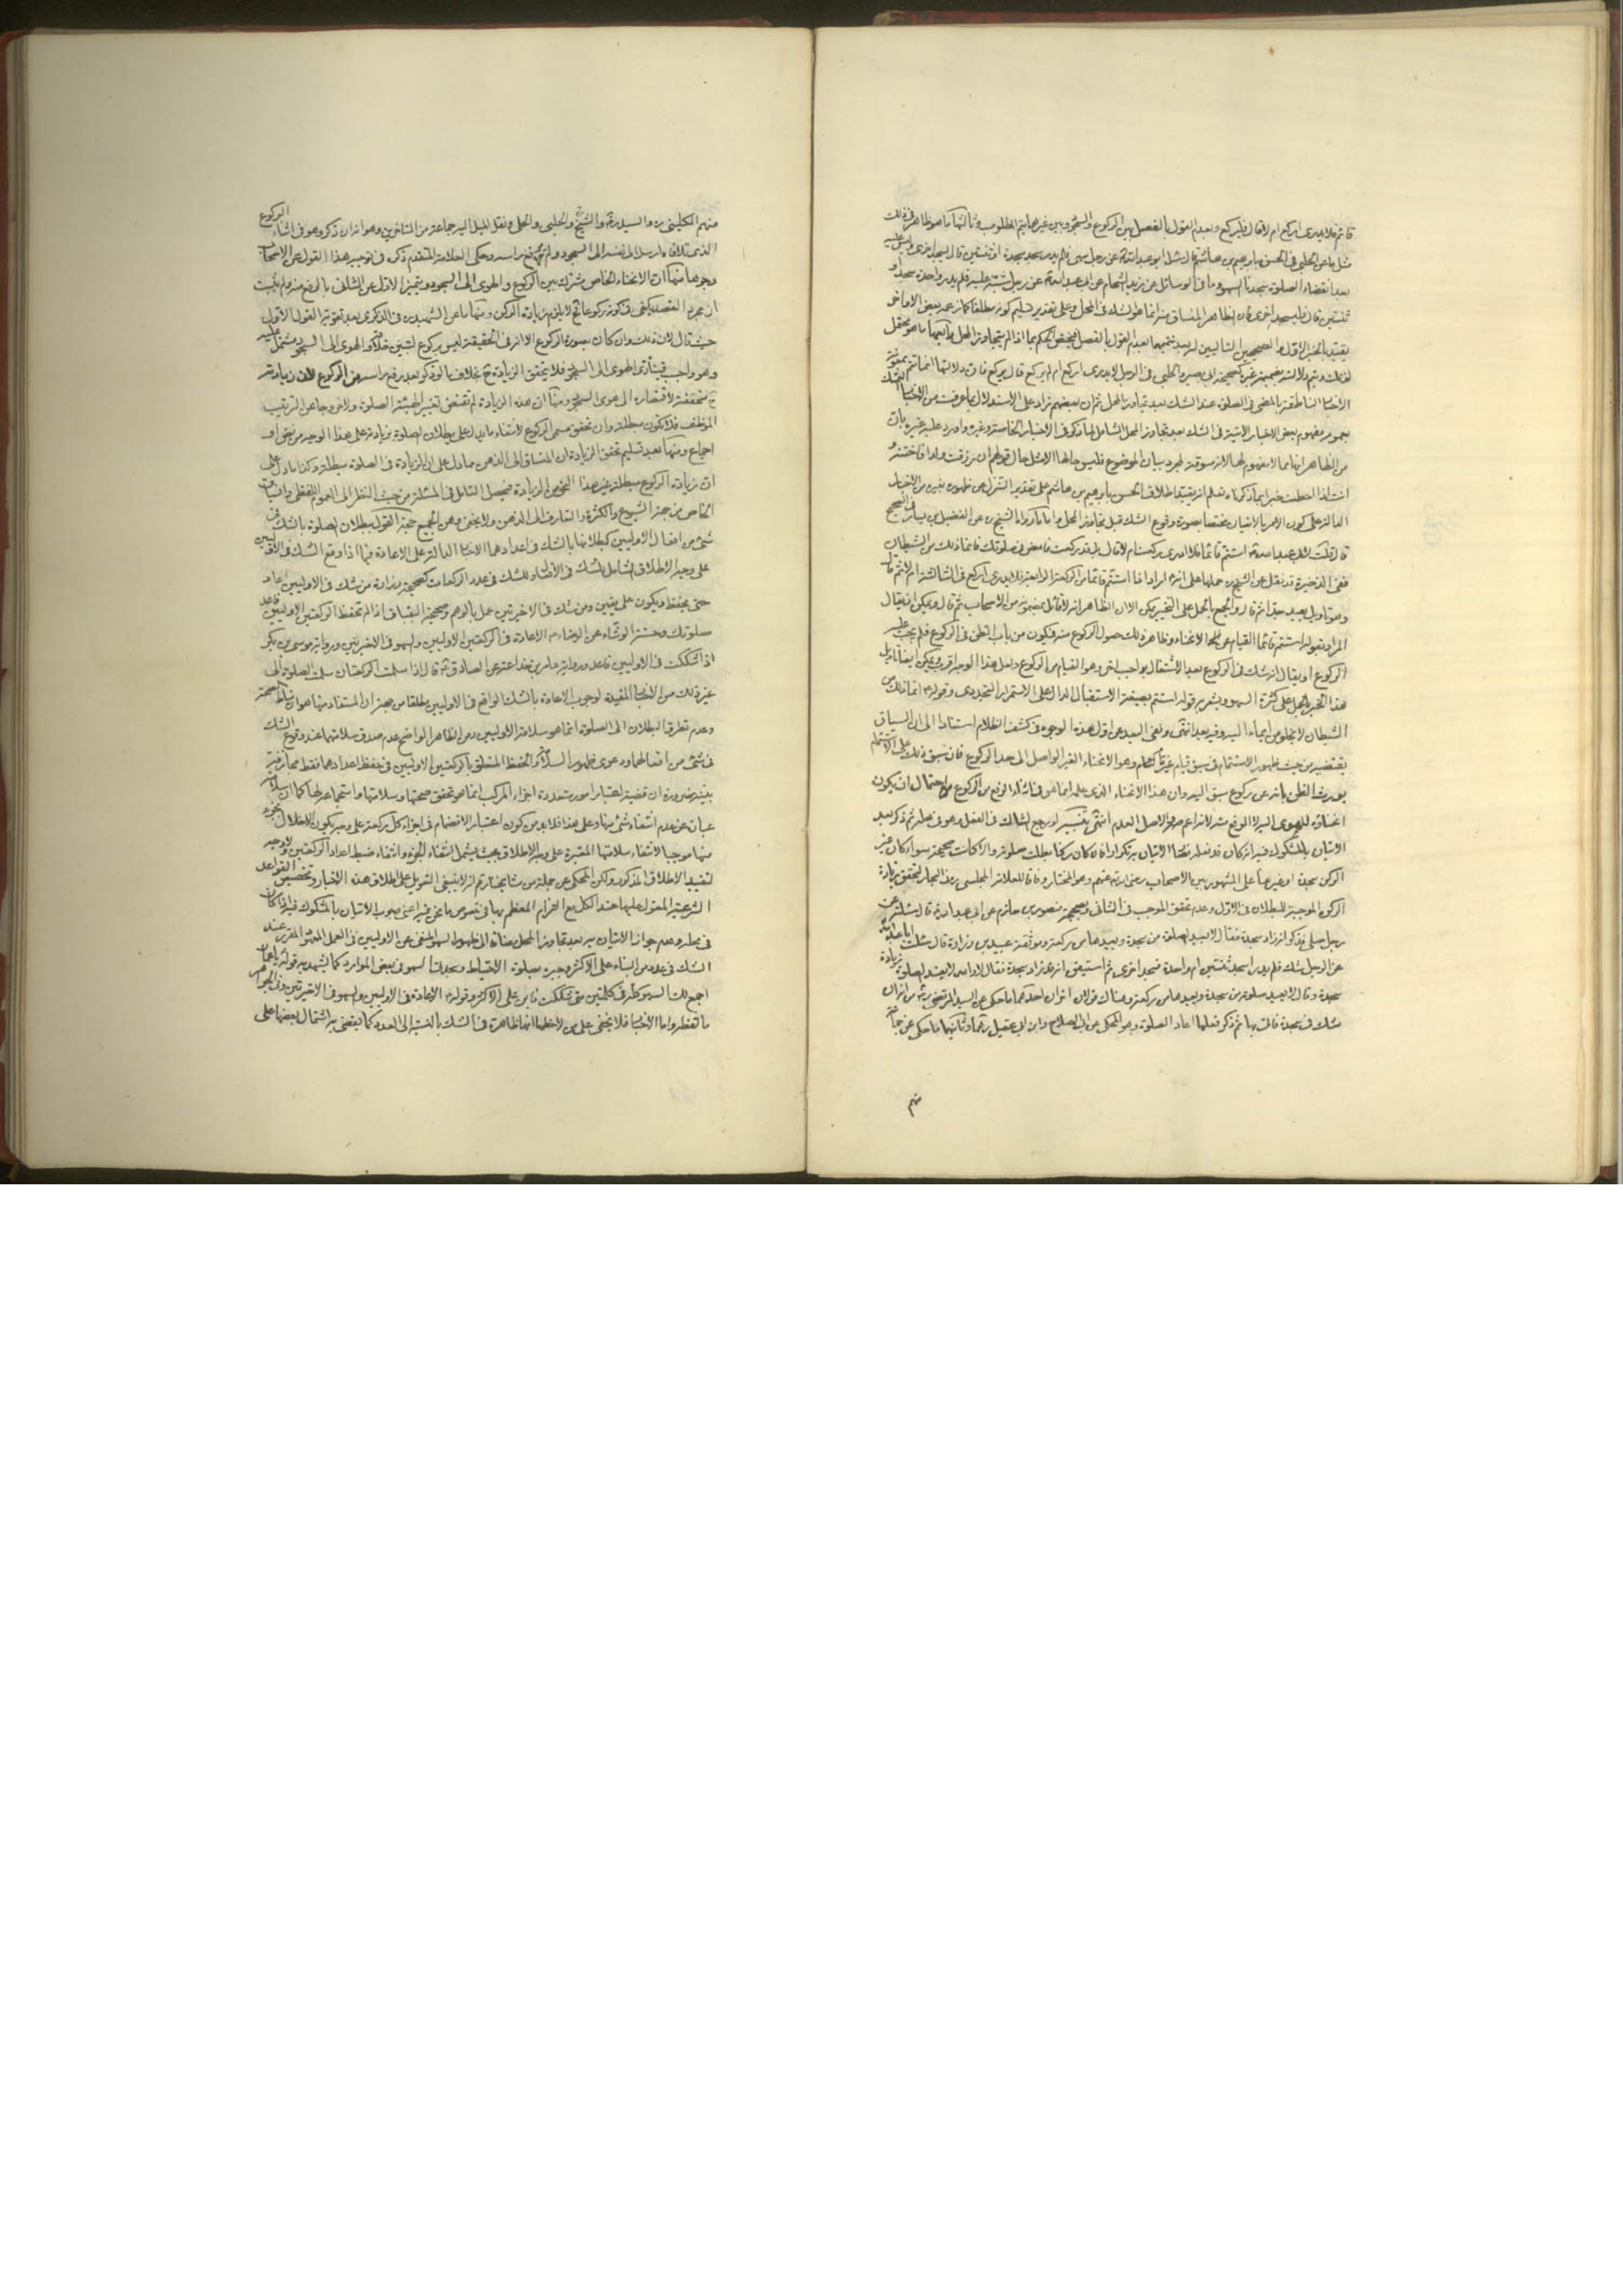 قائم فلا يدرى اركع ام لا قال فليركع وبعدم القول بالفصل بين الركوع والسجود وبين غيرهما يتم المطلوب وثالثها ما هو ظاهر فى ذلك
مثل ما عن الحلبى فى الحسن بابرهيم بن هاشم قال سئل ابو عبد الله عن رجل سهى فلم يدر سجد سجدة ام ثنتين قال يسجد اخرى وليس عليه
بعد انقضاء الصلوة سجدتا السهو وما فى الوسائل عن زيد الشحام عن ابى عبد الله عن رجل شبه عليه فلم يدر واحدة سجد او
ثنتين قال فليسجد اخرى فان الظاهر المنساق منه انما هو الشك فى المحل وعلى تقدير تسليم كونه مطلقا كما زعمه بعض الاواخر
يقيد بالخبر الاول والصحيحين التاليين له بعد تتميمها بعدم القول بالفصل فيختص الحكم بما اذا لم يتجاوز المحل ورابعها ما هو محتمل
لذلك ويتم دلالته بضميمة غيره كصحيحة ابى بصير والحلبى فى الرجل لا يدرى اركع ام لم يركع قال يركع فان دلالتها انما تتم بمعونة
الاخبار الناطقة بالمضى فى الصلوة عند الشك بعد تجاوز المحل ثم ان بعضهم زاد على الاستدلال بما عرفت من الاخبار التمسك
بعموم مفهوم بعض الاخبار الاتية فى الشك بعد تجاوز المحل الشامل لما ذكر فى الاخبار الخاصة وغيره واورد عليه غيره بان
من الظاهر انها مما لا مفهوم لها لانه مسوقة لمجرد بيان الموضوع فليس حالها الا مثل حال قولهم ان رزقت ولدا فاختنه
انت اذا احطت خبرا بما ذكرناه تعلم انه يقيد اطلاق الحسن بابرهيم بن هاشم على تقدير التنزل عن ظهوره بغيره من الاخبار
الدالة على كون الامر بالاتيان مختصا بصورة وقوع الشك قبل تجاوز المحل واما ما رواه الشيخ ره عن الفضيل بن يسار فى الصحيح
قال قلت لابى عبد الله استتم قائما فلا ادرى ركعت ام لا قال بلى قد ركعت فامض فى صلوتك فانما ذلك من الشيطان
ففى الذخيرة قد نقل عن الشيخ ره حملها على انه اراد اذا استتم قائما من الركعة الرابعة فلا يدرى اركع فى الثالثة ام لا ثم قال
وهو تاويل بعيد جدا ثم قال والجمع بالحمل على التخيير ممكن الا ان الظاهر انه لا قائل بمضمونه من الاصحاب ثم قال ويمكن ان يقال
المراد بقوله استتم قائما القيام عن الانحناء وظاهر ذلك حصول الركوع منه فيكون من باب الظن فى الركوع فلم يجب عليه
الركوع او يقال انه شك فى الركوع بعد الاشتغال بواجب اخر وهو القيام من الركوع ولعل هذا الوجه اقرب ويمكن ايضا تاويل
هذا الخبر بالحمل على كثرة السهو ويشعر به قوله استتم بصيغة الاستقبال الدال على الاستمرار التجددى وقوله انما ذلك من
الشيطان لا يخلو من ايماء اليه وفيه بعد انتهى ونفى البعد عن اول هذه الوجوه فى كشف الظلام استنادا الى ان السياق
يقتضيه من حيث ظهور الاستتمام فى سبق قيام غير تام وهو الانحناء الغير الواصل الى حد الركوع فان سبق ذلك على الاستتمام
يورث الظن بانه عن ركوع سبق اليه وان هذا الانحناء الذى علمه انما هو فى اثناء الرفع من الركوع مع احتمال ان يكون
انحناؤه للهوى اليه لا الرفع منه
الاتيان بالمشكوك فيه انه كان قد فعله بطل الاتيان به تكرارا فان كان ركنا بطلت صلوته والا كانت صحيحة سواء كان غير
الركن سجدة او غيرها على المشهور بين الاصحاب رضى الله عنهم وهو المختار وفاقا للعلامة المجلسى ره فى البحار لتحقق زيادة
الركن الموجبة للبطلان فى الاول وعدم تحقق الموجب فى الثانى وصحيحة منصور بن حازم عن ابى عبد الله قال سئلته عن
رجل صلى فذكر انه زاد سجدة فقال لا يعيد الصلوة من سجدة ويعيدها من ركعة وموثقة عبيد بن زرارة قال سئلت ابا عبد الله
عن الرجل شك فلم يدر اسجد ثنتين ام واحدة فسجد اخرى ثم استيقن انه قد زاد سجدة فقال لا والله لا يفسد الصلوة زيادة
سجدة وقال لا يعيد صلوته من سجدة ويعيدها من ركعة وهناك قولان اخران احدهما ما حكى عن السيد المرتضى ره من انه ان
شك فى سجدة فاتى بها ثم ذكر فعلها اعاد الصلوة وهو المحكى عن ابى الصلاح وابن ابى عقيل ره وثانيهما ما حكى عن جماعة
منهم
منهم الكلينى ره والسيد ره والشيخ والحلبى والحلى ونقل الميل اليه جماعة من المتاخرين وهو انه ان ذكر وهو فى اثناء الركوع
الذى تلافاه ارسل نفسه الى السجود ولم يرفع راسه وحكى العلامة المتقدم ذكره فى توجيه هذا القول عن الاصحاب
وجوها منها ان الانحناء الخاص مشترك بين الركوع والهوى الى السجود ويتميز الاول عن الثانى بالرفع منه ولم يثبت
ان مجرد القصد يكفى فى كونه ركوعا فلا يلزم زيادة الركن ومنها ما عن الشهيد ره فى الذكرى بعد تقوية القول الاول
حيث قال لان ذلك وان كان بصورة الركوع الا انه فى الحقيقة ليس بركوع لتبين خلافه والهوى الى السجود مشتمل عليه
وهو واجب فيتادى الهوى الى السجود فلا يتحقق الزيادة ح بخلاف ما لو ذكر بعد رفع راسه من الركوع لان زيادته
ح متحققة لافتقاره الى هوى السجود ومنها ان هذه الزيادة لم تقتض تغيير الهيئة الصلوة ولا خروجا عن الترتيب
الموظف فلا تكون مبطلة وان تحقق مسمى الركوع لانتفاء ما يدل على بطلان الصلوة بزيادته على هذا الوجه من نص او
اجماع ومنها بعد تسليم تحقق الزيادة ان المنساق الى الذهن مما دل على ان الزيادة فى الصلوة مبطلة وكذا ما دل على
ان زيادة الركوع مبطلة غير هذا النحو من الزيادة فيحصل التامل فى المسئلة من حيث النظر الى العموم اللفظى وانسياق
الخاص من جهة الشيوع والكثرة والتعارف الى الذهن ولا يخفى وهن الجميع حجة القول ببطلان الصلوة بالشك فى
شىء من افعال الاوليين كبطلانها بالشك فى اعدادهما الاخبار الدالة على الاعادة فيما اذا وقع الشك فى الاوليين
على وجه الاطلاق الشامل للشك فى الافعال وللشك فى عدد الركعات كصحيحة زرارة من شك فى الاوليين اعاد
حتى يحفظ ويكون على يقين ومن شك فى الاخيرتين عمل بالوهم وصحيحة البقباق اذا لم تحفظ الركعتين الاوليين فاعد
صلوتك وحسنة الوشاء عن الرضا الاعادة فى الركعتين الاوليين والسهو فى الاخيرتين ورواية موسى بن بكر
اذا شككت فى الاوليين فاعد ورواية عامر بن جذاعة عن الصادق قال اذا سلمت الركعتان سلمت الصلوة الى
غير ذلك من الاخبار المفيدة لوجوب الاعادة بالشك الواقع فى الاوليين مطلقا من جهة ان المستفاد منها هو ان مناط صحة
وعدم تطرق البطلان الى الصلوة انما هو سلامة الاوليين ومن الظاهر الواضح عدم صدق سلامتهما عند وقوع الشك
فى شىء من افعالهما ودعوى ظهور السلامة والحفظ المتعلق بالركعتين الاوليين فى حفظ اعدادهما فقط مجازفة
بينة ضرورة ان قضية اعتبار امور متعددة اجزاء المركب انما هو تحقق صحتها وسلامتها واستجماعه لها كما ان سلامته
عبارة عن عدم انتفاء شىء منها وعلى هذا فلا بد من كون اعتبار الانضمام فى اجزاء كل ركعة على وجه يكون الاخلال بجزء
منها موجبا لانتفاء سلامتها المعتبرة على وجه الاطلاق بحيث يشمل انتفاء الجزء وانتفاء ضبط اعداد الركعتين ولا وجه
لتقييد الاطلاق المذكور ولكن المحكى عن جملة من مشايخنا ره انه لا ينبغى التعويل على اطلاق هذه الاخبار وتخصيص القواعد
الشرعية المعول عليها عند الكل مع التزام المعظم بها فى خصوص ما نحن فيه اعنى وجوب الاتيان بالمشكوك فيه اذا كان
فى محله وعدم جواز الاتيان به بعد تجاوز المحل مضافا الى ظهور السهو المنفى عن الاوليين فى العمل المعهود المقرر عند
الشك فى عدد من البناء على الاكثر وجبره بصلوة الاحتياط وسجدتا السهو فى بعض الموارد كما يشهد به قوله يا عمار
اجمع لك السهو كله فى كلمتين متى شككت فابن على الاكثر وقوله الاعادة فى الاوليين والسهو فى الاخيرتين وفى الجواهر
ما لفظه واما الاخبار فلا يخفى على من لاحظها انها ظاهرة فى الشك بالنسبة الى العدد كما يقضى به اشتمال بعضها على